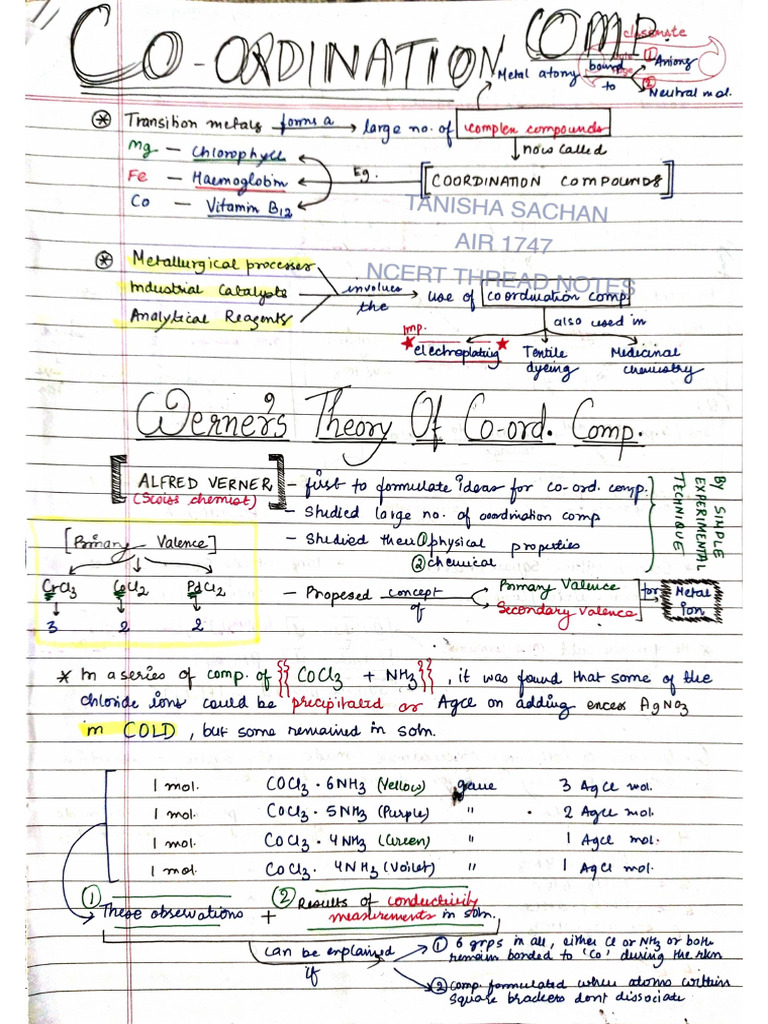 CO-ORDINATION COMP.
Metal atoms bound to
① Anions
② Neutral mol.
* Transition metals forms a large no. of complex compounds
now called
Mg - Chlorophyll
Fe - Haemoglobin
Eg.
[COORDINATION COMPOUNDS]
Co - Vitamin B12
TANISHA SACHAN
AIR 1747
NCERT THREAD NOTES
* Metallurgical processes
Industrial Catalysts
Analytical Reagents
involves the use of coordination comp.
also used in
Imp.
electroplating
Textile dyeing
Medicinal chemistry
Werner's Theory Of Co-ord. Comp.
[ALFRED VERNER]
(Swiss chemist)
- first to formulate ideas for co-ord. comp.
- Studied large no. of coordination comp
- Studied their ① physical properties
② chemical
BY SIMPLE EXPERIMENTAL TECHNIQUE
- Proposed concept of
Primary Valence
Secondary Valence
for Metal ion
[Primary Valence]
CrCl3 CoCl2 PdCl2
3 2 2
* In a series of comp. of {{ COCl3 + NH3 }}, it was found that some of the
chloride ions could be precipitated as AgCl on adding excess AgNO3
in COLD, but some remained in soln.
1 mol. COCl3 · 6NH3 (Yellow) gave 3 AgCl mol.
1 mol. COCl3 · 5NH3 (Purple) " 2 AgCl mol.
1 mol. COCl3 · 4NH3 (Green) " 1 AgCl mol.
1 mol. COCl3 · 4NH3 (Voilet) " 1 AgCl mol.
① These observations + ② Results of conductivity
measurements in soln.
can be explained if
① 6 grps in all, either Cl or NH3 or both
remain bonded to 'Co' during the rkn
② Comp formulated where atoms within
square brackets dont dissociate